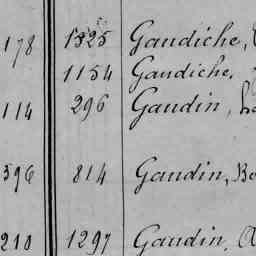 178 1325 Gaudiche,
1154 Gaudiche,
114 296 Gaudin,
596 814 Gaudin, Bo
210 1297 Gaudin, A